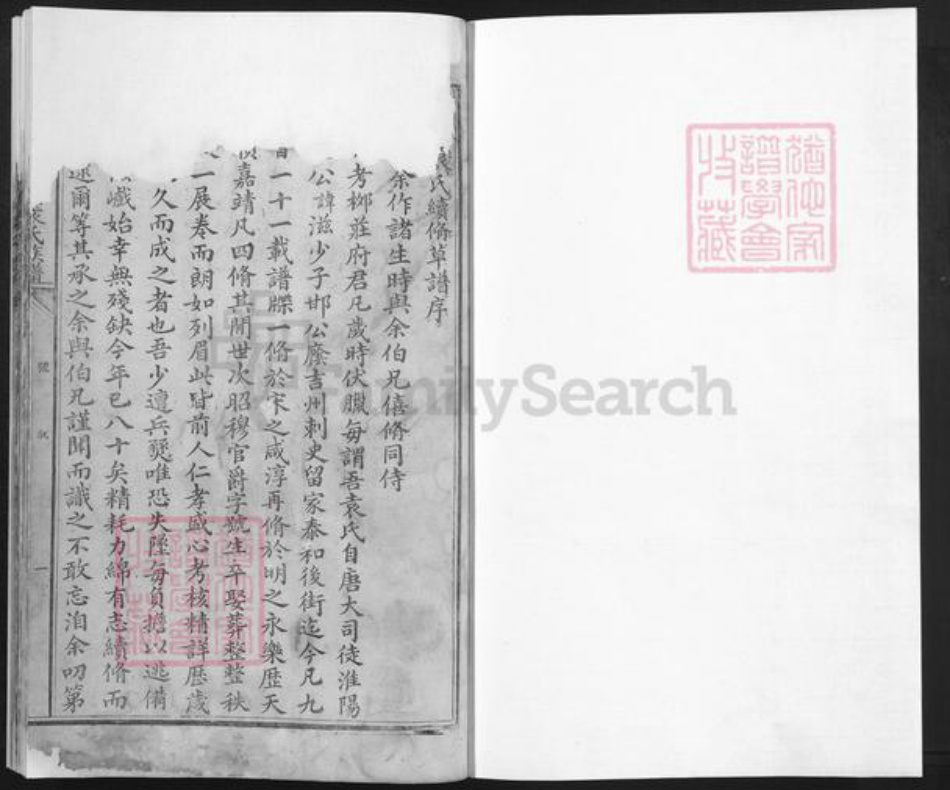 氏續脩草譜序
余作諸生時與余伯兄僖脩同侍
考柳莊府君凡歲時伏臘每謂吾袁氏自唐大司徒淮陽
公諱滋少子邯公廕吉州刺史留家泰和後街迄今凡九
百一十一載譜牒一脩於宋之咸淳再脩於明之永樂歷天
嘉靖凡四脩其間世次昭穆官爵字號生卒娶葬整整秩
一展卷而朗如列眉此皆前人仁孝盛心考核精詳歷歲
久而成之者也吾少遭兵燹唯恐失墜每負擔以逃備
戲始幸無殘缺今年已八十矣精耗力綿有志續脩而
逑爾等其承之余與伯兄謹聞而識之不敢忘洎余叨第
氏族譜
號 敘
一
猶他家譜學會收藏
猶他家譜學會收藏
FamilySearch